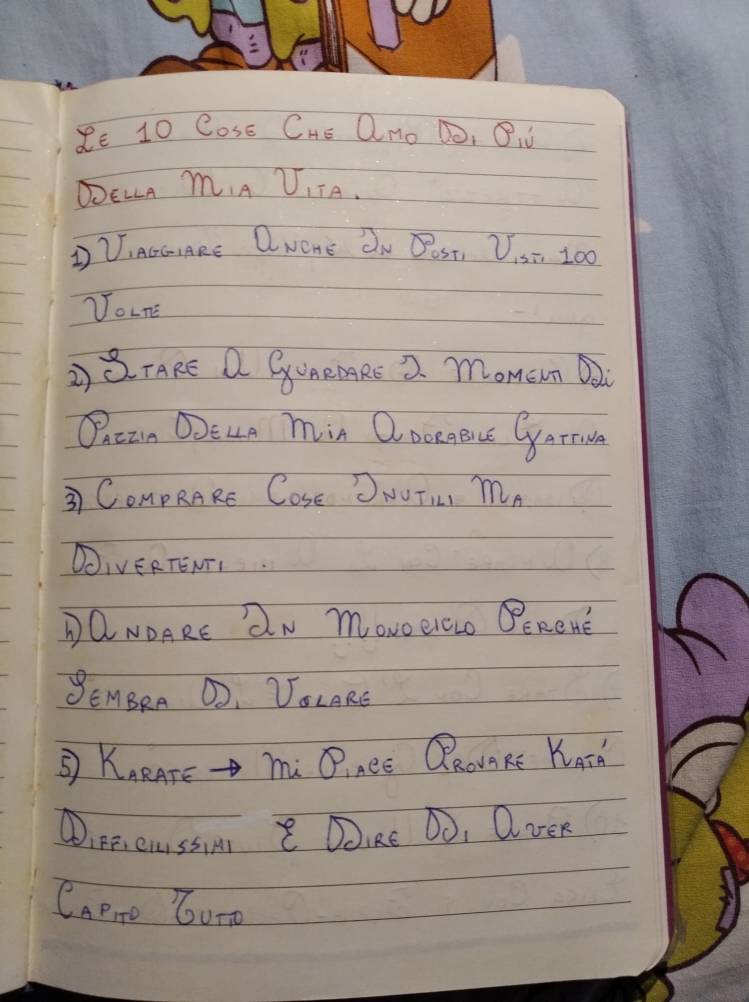 Le 10 Cose Che Amo Di Più
Della Mia Vita.
1) Viaggiare Anche In Posti Visti 100
Volte
2) Stare A Guardare I Momenti Di
Pazzia Della Mia Adorabile Gattina
3) Comprare Cose Inutili Ma
Divertenti.
4) Andare In Monociclo Perché
Sembra Di Volare
5) Karate → Mi Piace Provare Katà
Difficilissimi E Dire Di Aver
Capito Tutto